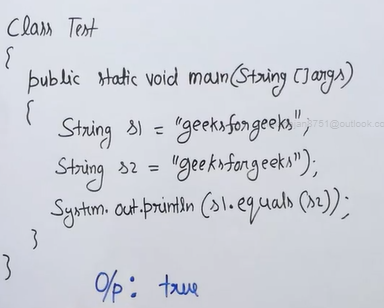 Class Test
{
public static void main(String []args)
{
String s1 = "geeksforgeeks";
String s2 = "geeksforgeeks");
System.out.println (s1.equals(s2));
}
}
O/p: true